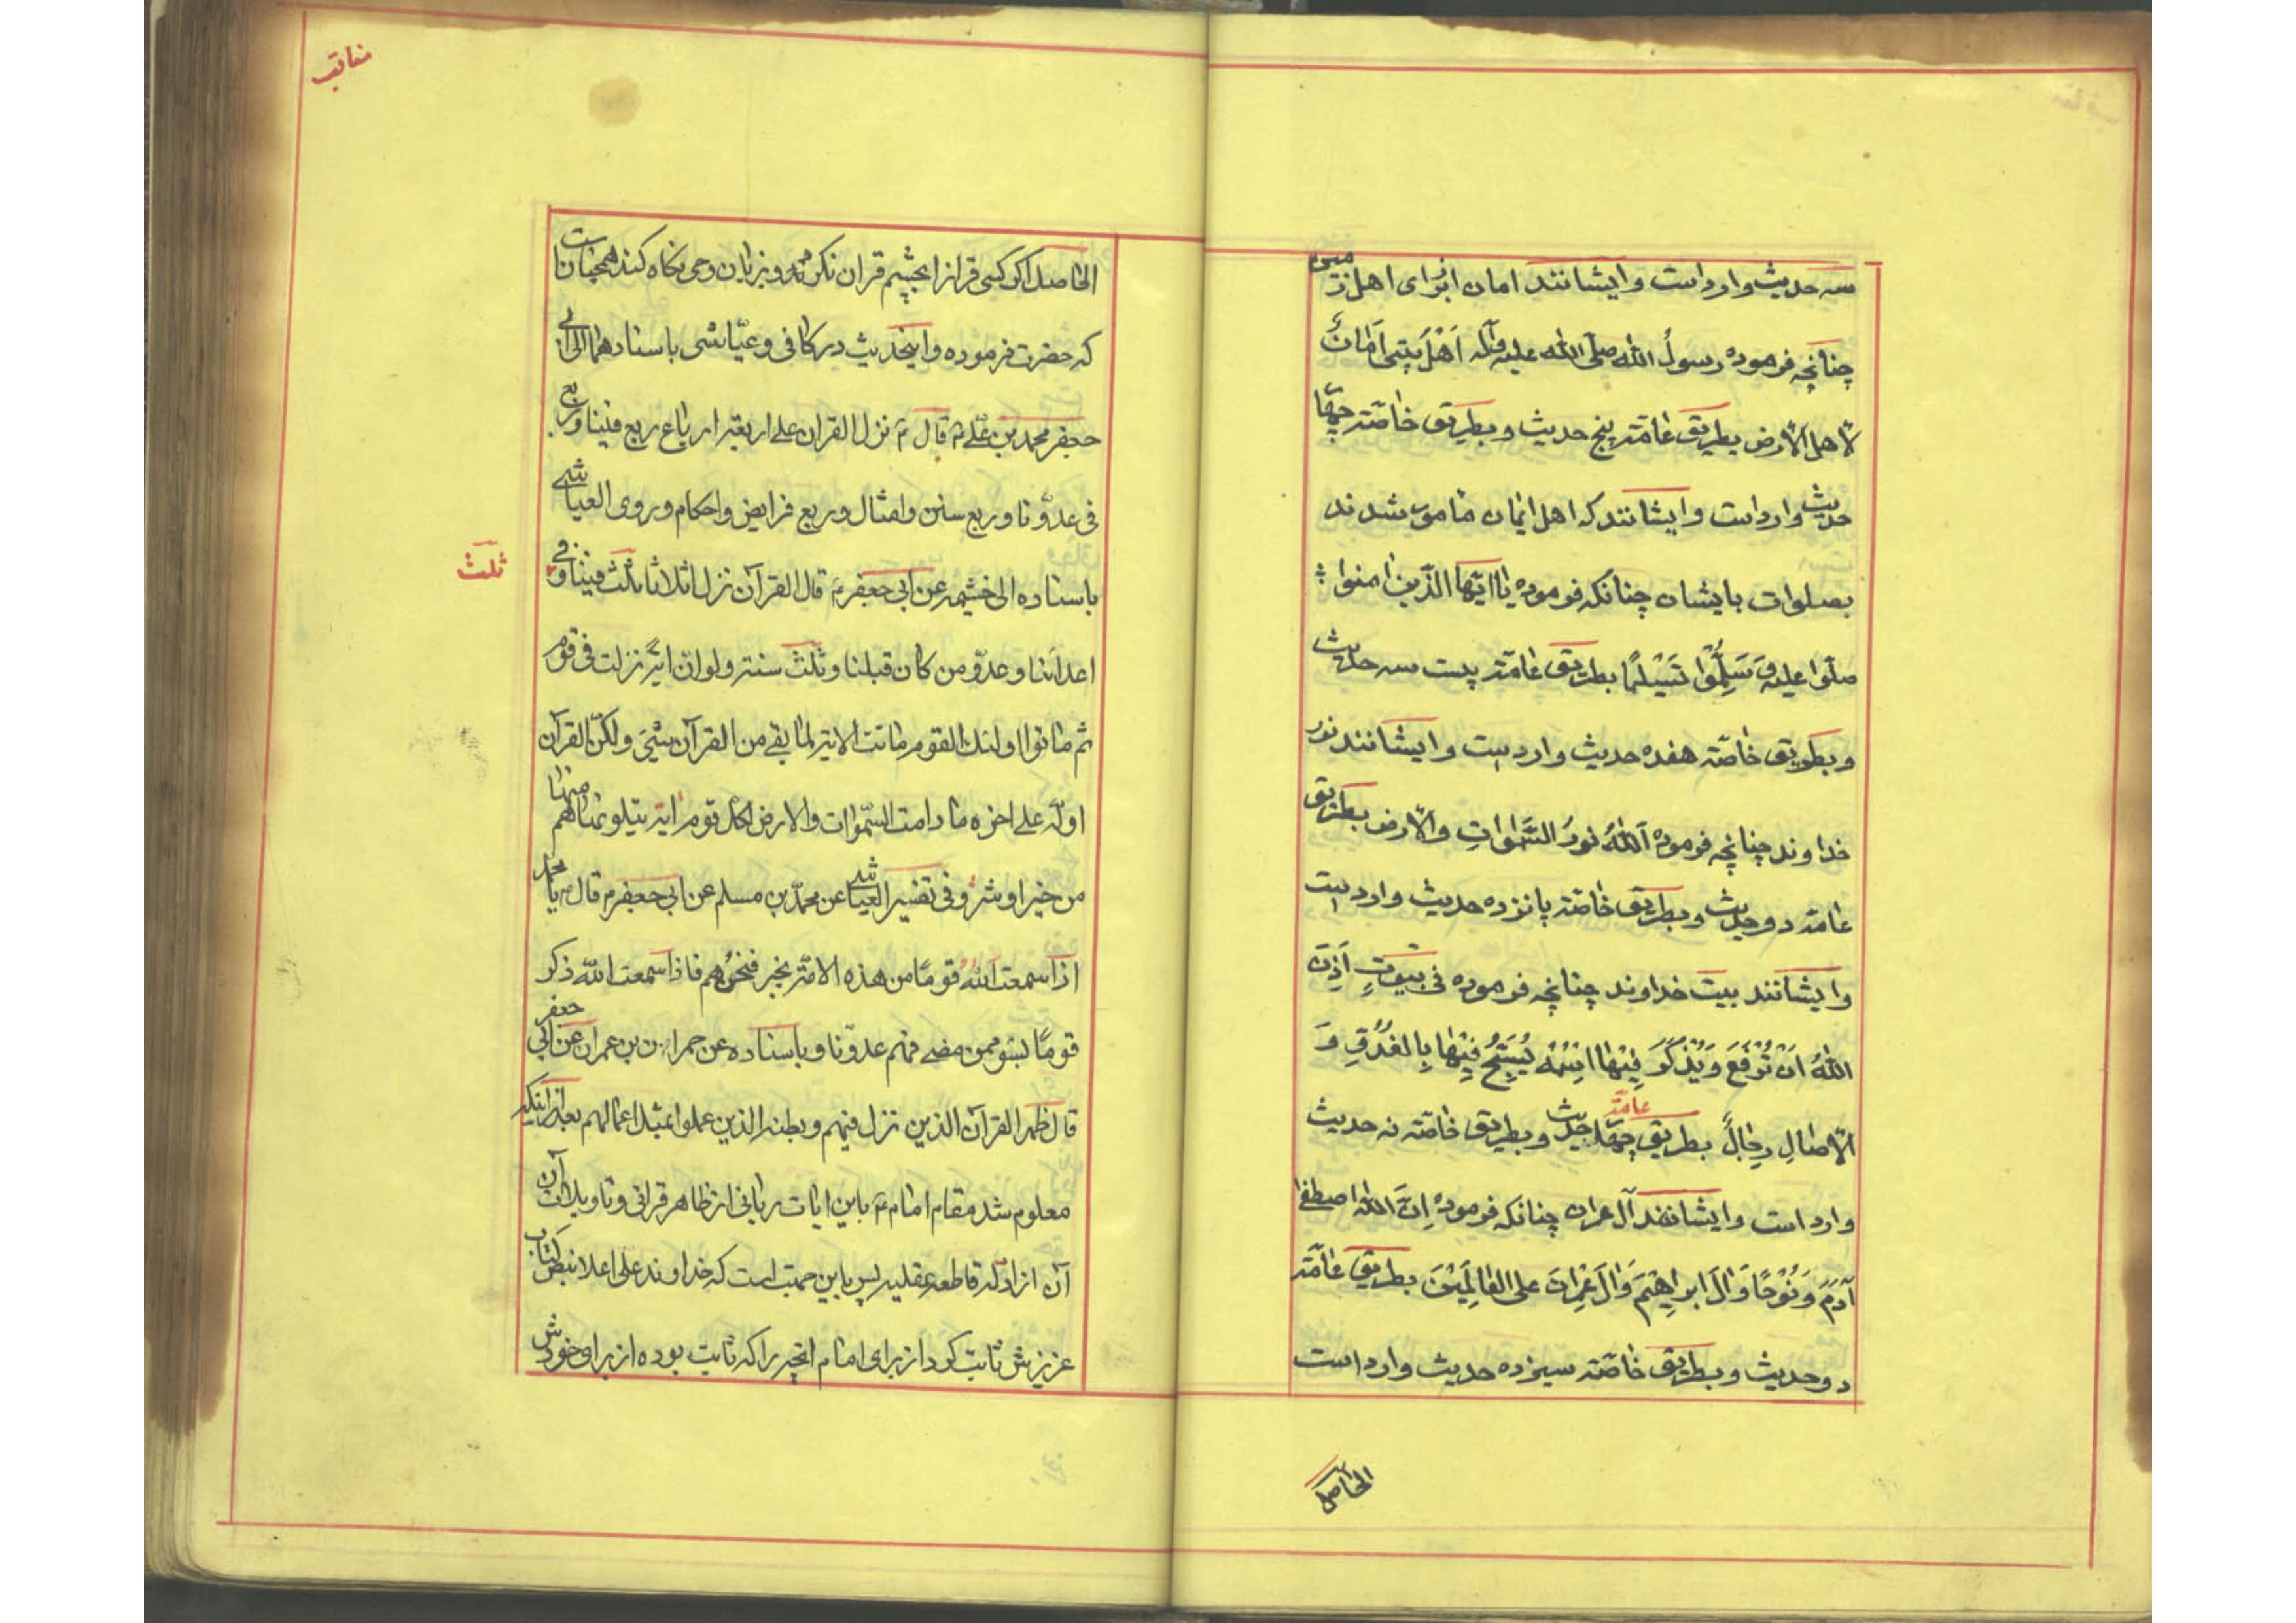 سه حدیث وارد است و ایشانند امان از برای اهل زمین
چنانچه فرموده رسولُ الله صلّی الله علیه وآله اَهْلُ بَیتی اَمَانٌ
لاَهل الاَرض بطریق عٰامّته پنج حدیث و بطریق خٰاصّته چهٰا
حدیث وارد است و ایشانند که اهل ایمان مٰامور شدند
بصلوات بایشان چنانکه فرموده یٰا ایّهٰا الّذین اٰمنوا
صلّوا علیه وَ سَلِّمُوْا تَسْلیْمًا بطریق عٰامّته بیست سه حدیث
و بطریق خٰاصّته هفده حدیث وارد است و ایشانند نور
خداوند چنانچه فرموده اَللهُ نورُ السَّمٰوٰاتِ والاَرض بطریق
عٰامّه دو حدیث و بطریق خٰاصّته پانزده حدیث وارد است
و ایشانند بیت خداوند چنانچه فرموده فی بیوتٍ اَذِنَ
اللهُ اَنْ تُرْفَعَ وَ یُذْکَرَ فِیْهٰا اسْمُهُ یُسَبِّحُ فِیْهٰا بِالغُدُوِّ وَ
الاٰصٰالِ رِجٰالٌ بطریق عٰامّته چهٰار حدیث و بطریق خٰاصّته نه حدیث
وارد است و ایشانند آل عمران چنانکه فرموده اِنَّ اللهَ اصطفیٰ
آدَمَ وَ نُوْحًا وَ اٰلَ ابرٰاهِیْمَ وَ اٰلَ عِمْرٰانَ علی العٰالَمِیْنَ بطریق عٰامّته
دو حدیث و بطریق خٰاصّته سیزده حدیث وارد است
الحٰاصل
مناقب
الحٰاصل اگر کسی قران را بچشم قران نکرند و بزبان وحی نکاه کند همچنان است
که حضرت فرموده و اینحدیث در کافی و عیّاشی باسنادهما الی ابی
جعفر محمد بن علی ع قال ع نزل القران علی اربعة ارباع ربع فینا و ربع
فی عدوّنا و ربع سنن و امثال و ربع فرایض و احکام و روی العیاشی
باسناده الی خثیمه عن ابی جعفر ع قال القرآن نزل اثلاثا ثلث فینا و فی
ثلث
اعدائنا و عدوّ من کان قبلنا و ثلث سنة ولو انّ ایة نزلت فی قوم
ثم ماتوا اولئک القوم ماتت الایة لما بقی من القرآن شیئ ولکنّ القرآن
اوّله علی اخره ما دامت السّمٰوٰات والارض لکل قوم ایة یتلونها هم منها
من خیر او شر و فی تفسیر العیاشی عن محمّد بن مسلم عن ابی جعفر ع قال ع یا محمد
اذا سمعت اللهَ قومًا من هذه الامّة بخیر فنحن هم فاذا سمعت اللهَ ذکر
قومًا بسوء ممن مضی فهم عدوّنا و باسناده عن حمران بن عمران عن ابی جعفر
قال ظهر القرآن الذین نزل فیهم و بطنه الذین عملوا بمثل اعمالهم بعد از اینکه
معلوم شد مقام امام ع باین ایات ربانی از ظاهر قرانی و تاویلات آن
آن از ادله قاطعه عقلیه پس باین حجت است که خداوند علی اعلا بنص کتاب
عزیزش ثابت کرد از برای امام انچه را که ثابت بوده از برای خودش